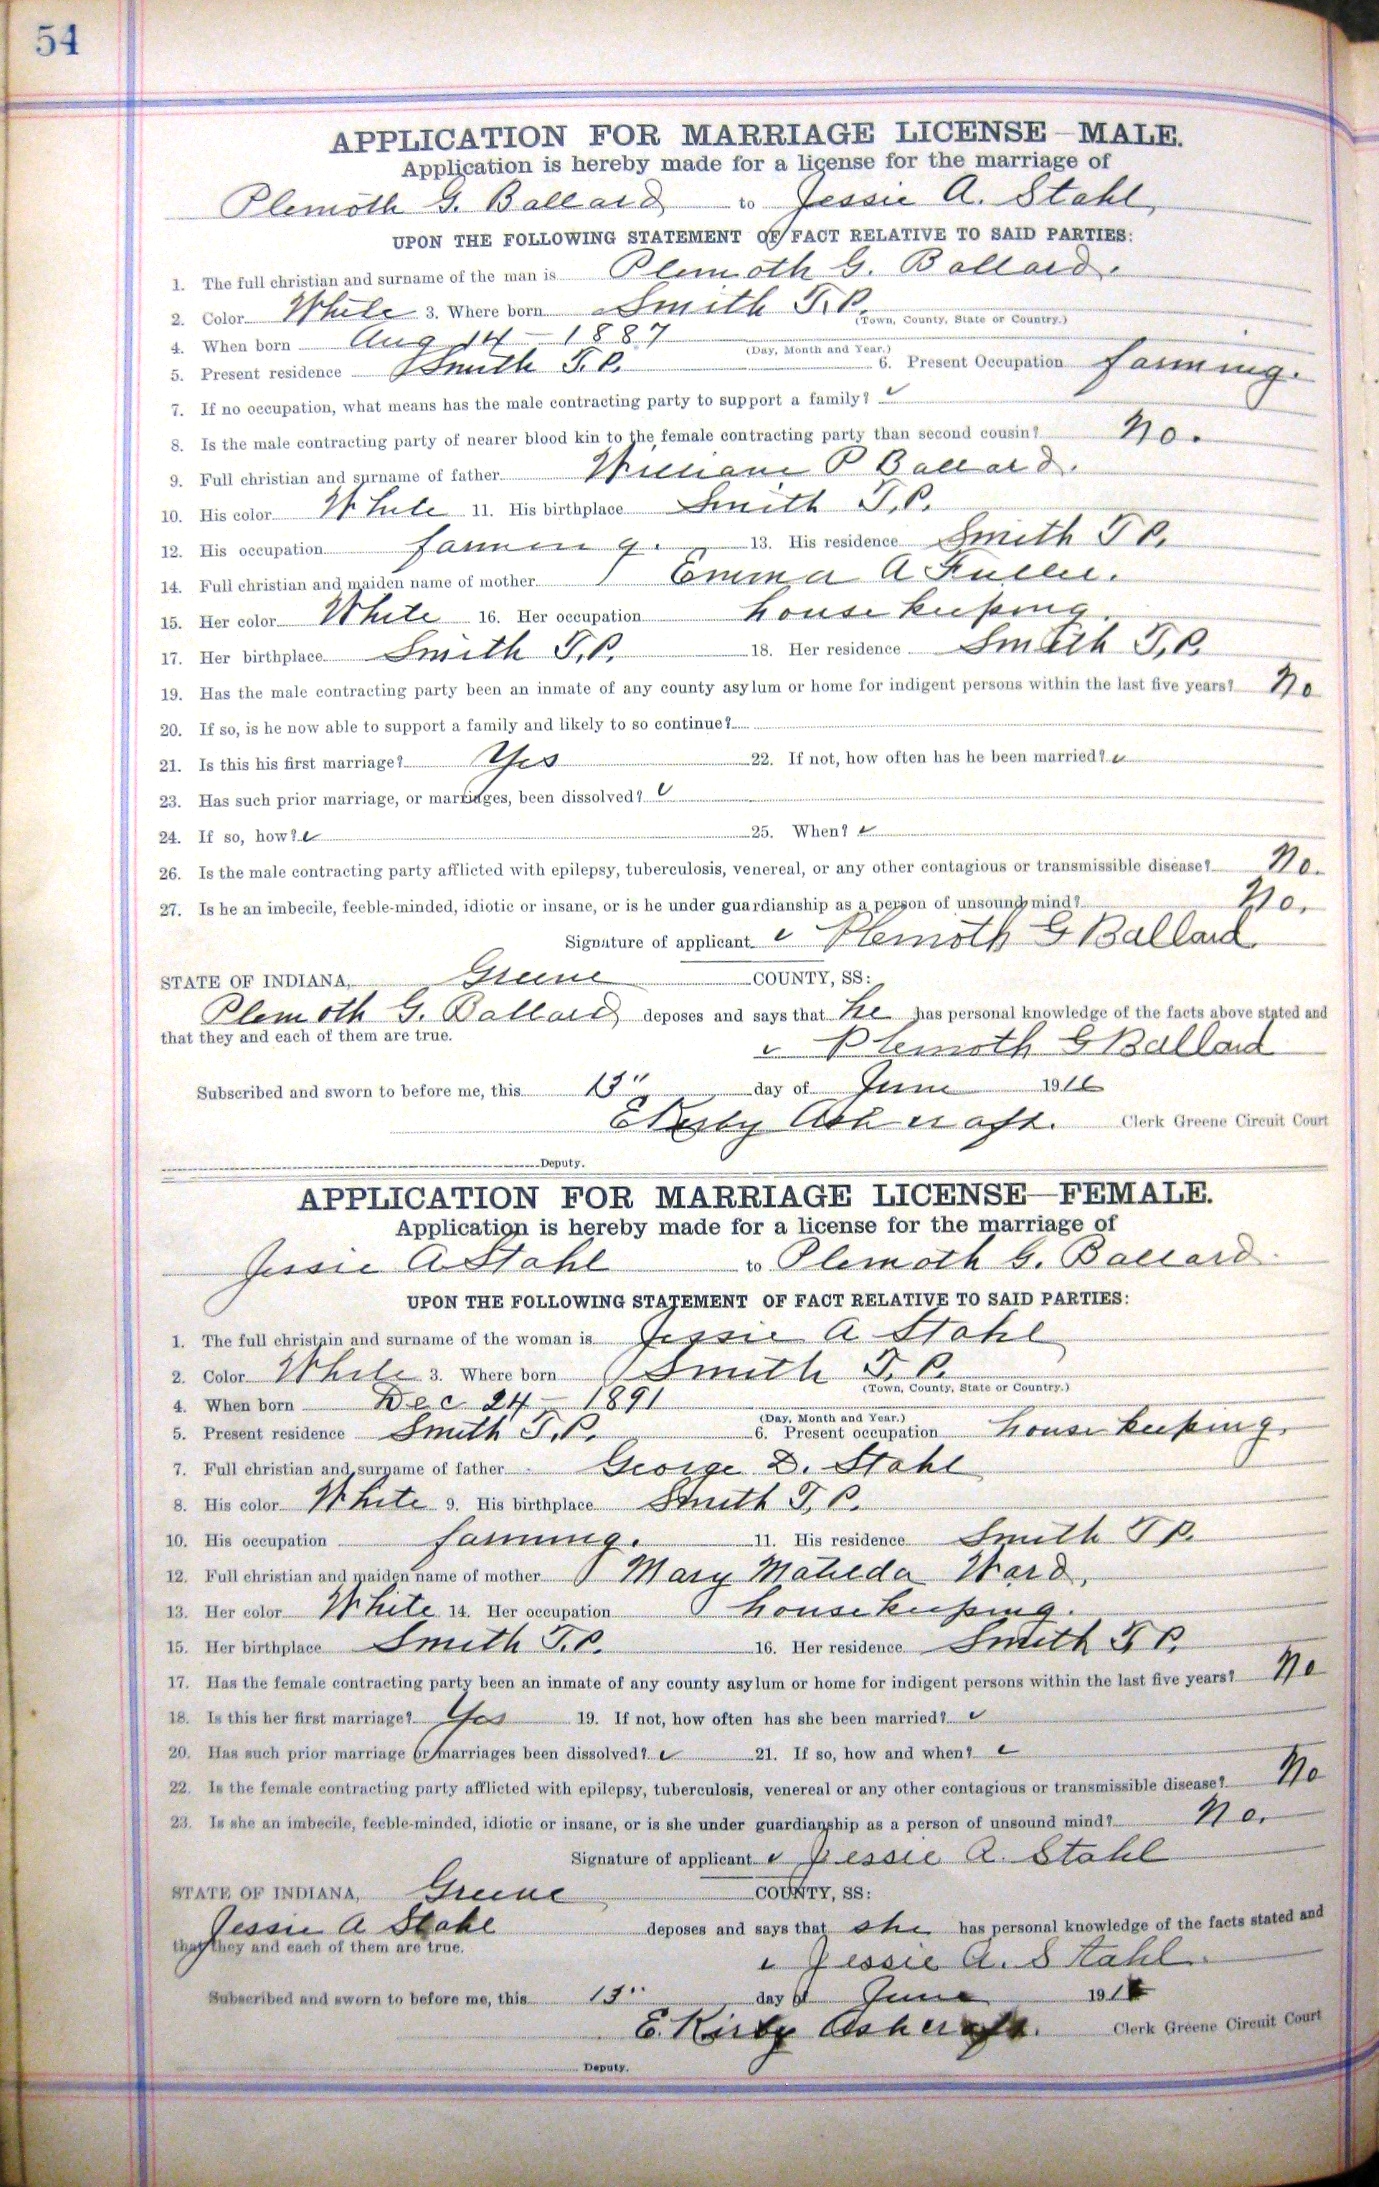 54
APPLICATION FOR MARRIAGE LICENSE—MALE.
Application is hereby made for a license for the marriage of
Plemoth G. Ballard to Jessie A. Stahl
UPON THE FOLLOWING STATEMENT OF FACT RELATIVE TO SAID PARTIES:
1. The full christian and surname of the man is Plemoth G. Ballard.
2. Color White 3. Where born Smith T.P.
(Town, County, State or Country.)
4. When born Aug 14 - 1887
(Day, Month and Year.)
5. Present residence Smith T.P. 6. Present Occupation farming.
7. If no occupation, what means has the male contracting party to support a family? ✓
8. Is the male contracting party of nearer blood kin to the female contracting party than second cousin? No.
9. Full christian and surname of father William P Ballard.
10. His color White 11. His birthplace Smith T.P.
12. His occupation farming. 13. His residence Smith T P.
14. Full christian and maiden name of mother Emma A
15. Her color White 16. Her occupation house keeping
17. Her birthplace Smith T.P. 18. Her residence Smith T.P.
19. Has the male contracting party been an inmate of any county asylum or home for indigent persons within the last five years? No
20. If so, is he now able to support a family and likely to so continue?
21. Is this his first marriage? Yes 22. If not, how often has he been married? ✓
23. Has such prior marriage, or marriages, been dissolved? ✓
24. If so, how? ✓ 25. When? ✓
26. Is the male contracting party afflicted with epilepsy, tuberculosis, venereal, or any other contagious or transmissible disease? No.
27. Is he an imbecile, feeble-minded, idiotic or insane, or is he under guardianship as a person of unsound mind? No.
Signature of applicant ✓ Plemoth G Ballard
STATE OF INDIANA, Greene COUNTY, SS:
Plemoth G. Ballard deposes and says that he has personal knowledge of the facts above stated and
that they and each of them are true.
✓ Plemoth G Ballard
Subscribed and sworn to before me, this 13" day of June 191
E Kirby Ashcraft. Clerk Greene Circuit Court
Deputy.
APPLICATION FOR MARRIAGE LICENSE—FEMALE.
Application is hereby made for a license for the marriage of
Jessie A Stahl to Plemoth G. Ballard
UPON THE FOLLOWING STATEMENT OF FACT RELATIVE TO SAID PARTIES:
1. The full christain and surname of the woman is Jessie A Stahl
2. Color White 3. Where born Smith T. P.
(Town, County, State or Country.)
4. When born Dec 24 - 1891
(Day, Month and Year.)
5. Present residence Smith T.P. 6. Present occupation house keeping.
7. Full christian and surname of father George D. Stahl
8. His color White 9. His birthplace Smith T.P.
10. His occupation farming. 11. His residence Smith T P.
12. Full christian and maiden name of mother Mary Matilda Ward,
13. Her color White 14. Her occupation house keeping.
15. Her birthplace Smith T.P. 16. Her residence Smith T.P.
17. Has the female contracting party been an inmate of any county asylum or home for indigent persons within the last five years? No
18. Is this her first marriage? Yes 19. If not, how often has she been married? ✓
20. Has such prior marriage or marriages been dissolved? ✓ 21. If so, how and when? ✓
22. Is the female contracting party afflicted with epilepsy, tuberculosis, venereal or any other contagious or transmissible disease? No
23. Is she an imbecile, feeble-minded, idiotic or insane, or is she under guardianship as a person of unsound mind? No.
Signature of applicant ✓ Jessie A. Stahl
STATE OF INDIANA, Greene COUNTY, SS:
Jessie A Stahl deposes and says that she has personal knowledge of the facts stated and
that they and each of them are true.
✓ Jessie A. Stahl.
Subscribed and sworn to before me, this 13" day of June 191
E. Kirby Ashcraft. Clerk Greene Circuit Court
Deputy.